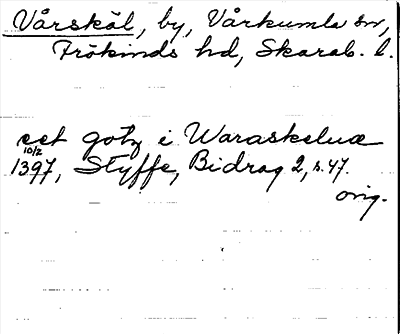 Vårskäl, by, Vårkumla sn,
Frökinds hd, Skarab. l.
eet gotz i Waraskelwæ
10/2
1397, Styffe, Bidrag 2, s. 47.
orig.